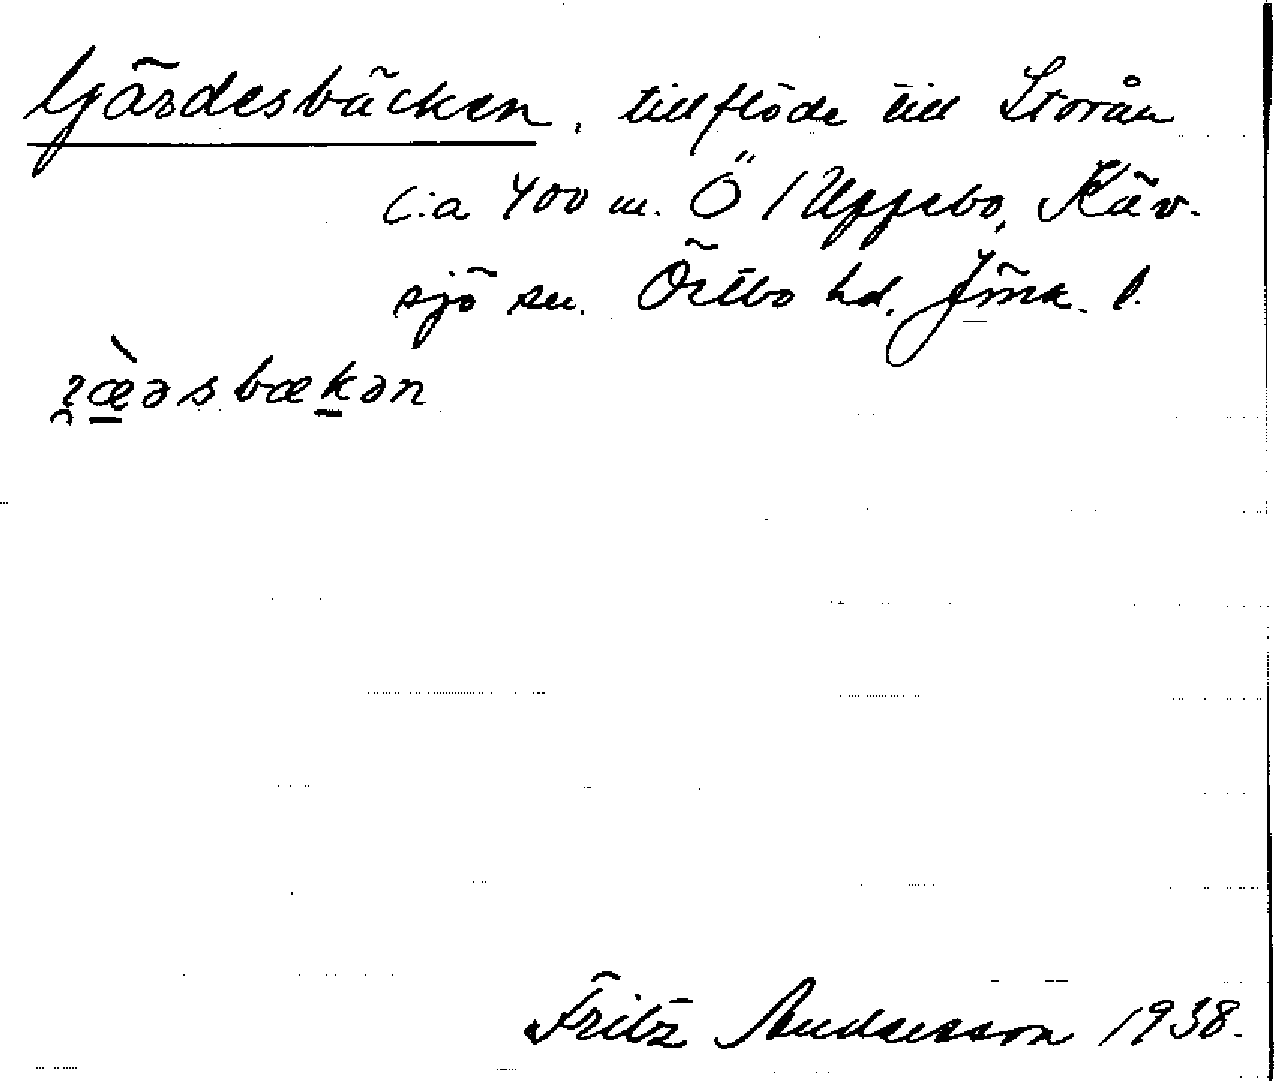 Gärdesbäcken, tillflöde till Storån
c:a 400 m. Ö / Uppebo, Käv-
sjö sn. Östbo hd. Jmk. l.
bækən
Fritz Andersson 1938.